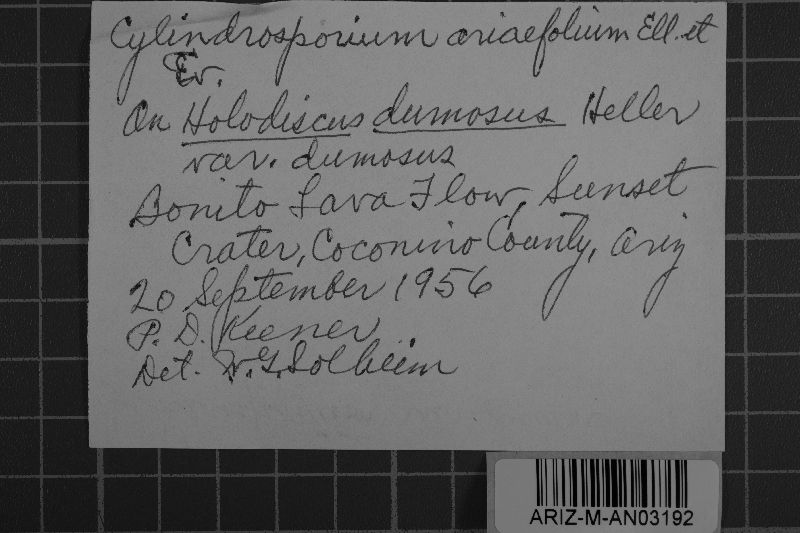 Cylindrosporium ariaefolium Ell. et
Ev.
On Holodiscus dumosus Heller
var. dumosus
Bonito Lava Flow, Sunset
Crater, Coconino County, Ariz
20 September 1956
P. D. Keener
Det. W. G. Solheim
ARIZ-M-AN03192